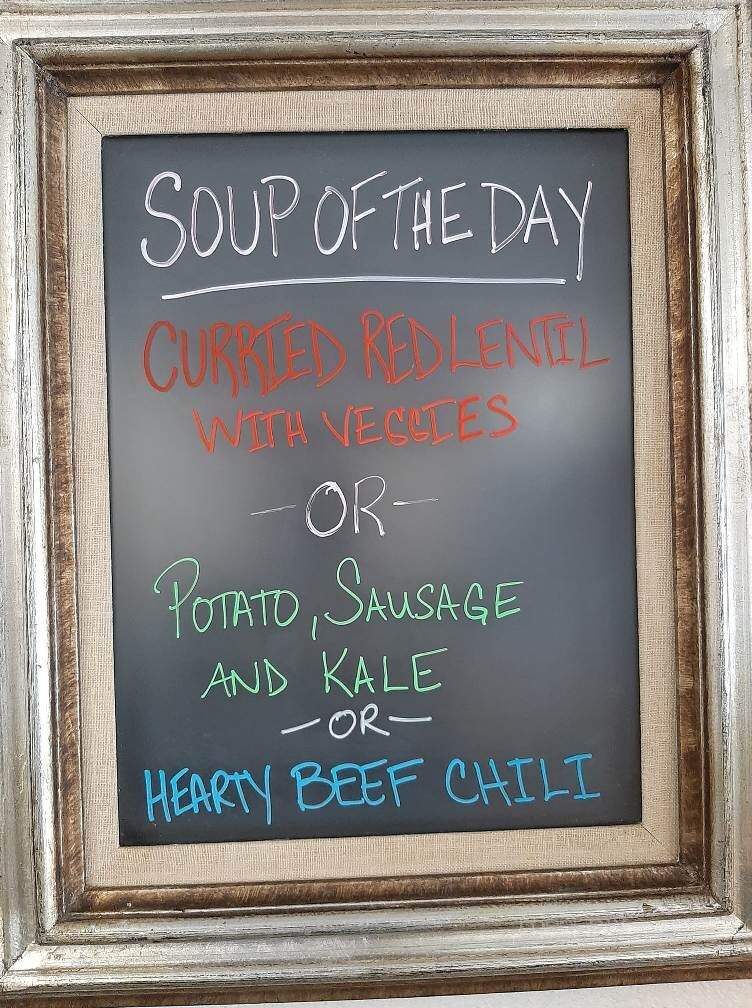 SOUP OF THE DAY
CURRIED RED LENTIL
WITH VEGGIES
-OR-
POTATO, SAUSAGE
AND KALE
-OR-
HEARTY BEEF CHILI